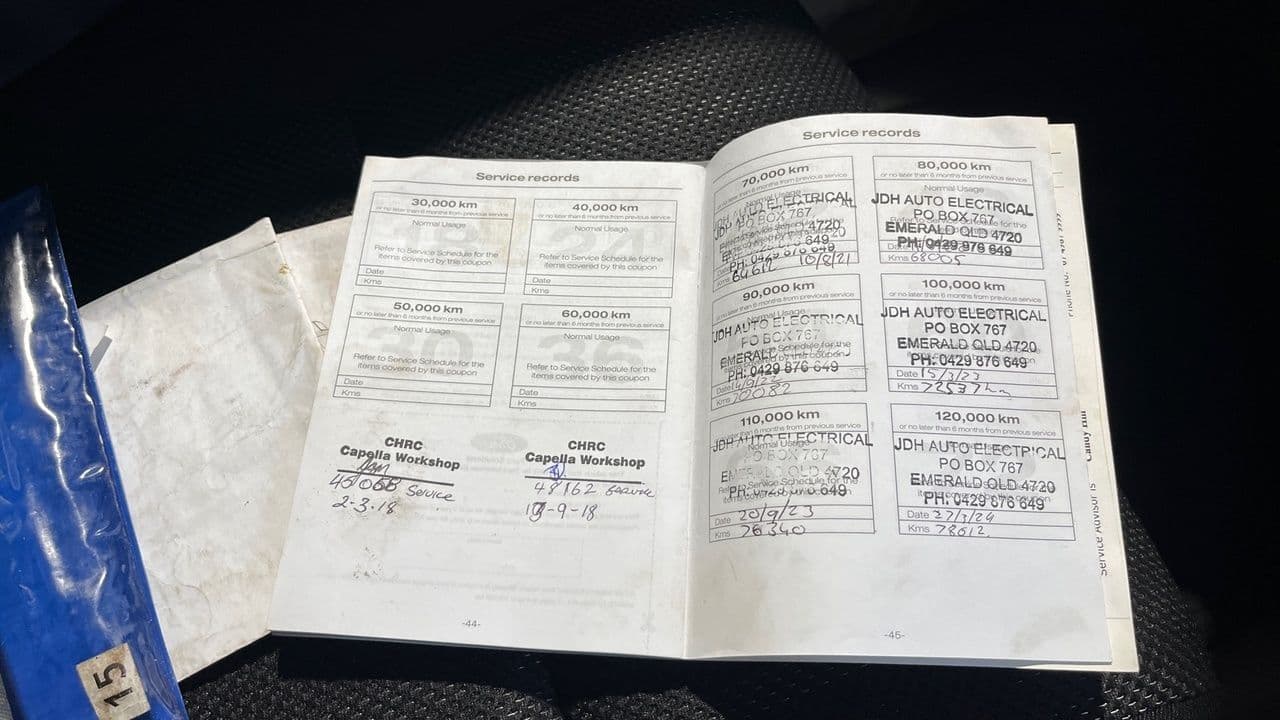 Service records
30,000 km
or no later than 6 months from previous service
Normal Usage
Refer to Service Schedule for the
items covered by this coupon
Date
Kms
40,000 km
or no later than 6 months from previous service
Normal Usage
Refer to Service Schedule for the
items covered by this coupon
Date
Kms
50,000 km
or no later than 6 months from previous service
Normal Usage
Refer to Service Schedule for the
items covered by this coupon
Date
Kms
60,000 km
or no later than 6 months from previous service
Normal Usage
Refer to Service Schedule for the
items covered by this coupon
Date
Kms
CHRC
Capella Workshop
Service
2-3.18
CHRC
Capella Workshop
48162 Service
-9-18
-44-
Service records
70,000 km
or no later than 6 months from previous service
Normal Usage
JDH AUTO ELECTRICAL
PO BOX 767
4720
649
10/8/21
Kms 64612
80,000 km
or no later than 6 months from previous service
Normal Usage
JDH AUTO ELECTRICAL
PO BOX 767
EMERALD QLD 4720
PH: 0429 876 649
Kms 68005
90,000 km
or no later than 6 months from previous service
Normal Usage
JDH AUTO ELECTRICAL
PO BOX 767
EMERALD
PH: 0429 876 649
Date
Kms 70082
100,000 km
or no later than 6 months from previous service
JDH AUTO ELECTRICAL
PO BOX 767
EMERALD QLD 4720
PH: 0429 876 649
Date 15/3/23
Kms 72537km
110,000 km
than 6 months from previous service
Normal Usage
JDH AUTO ELECTRICAL
PO BOX 767
QLD 4720
649
Date 20/9/23
Kms 76340
120,000 km
or no later than 6 months from previous service
JDH AUTO ELECTRICAL
PO BOX 767
EMERALD QLD 4720
PH: 0429 876 649
Date 27/3/24
Kms 78612
-45-
Service Advisor is
15